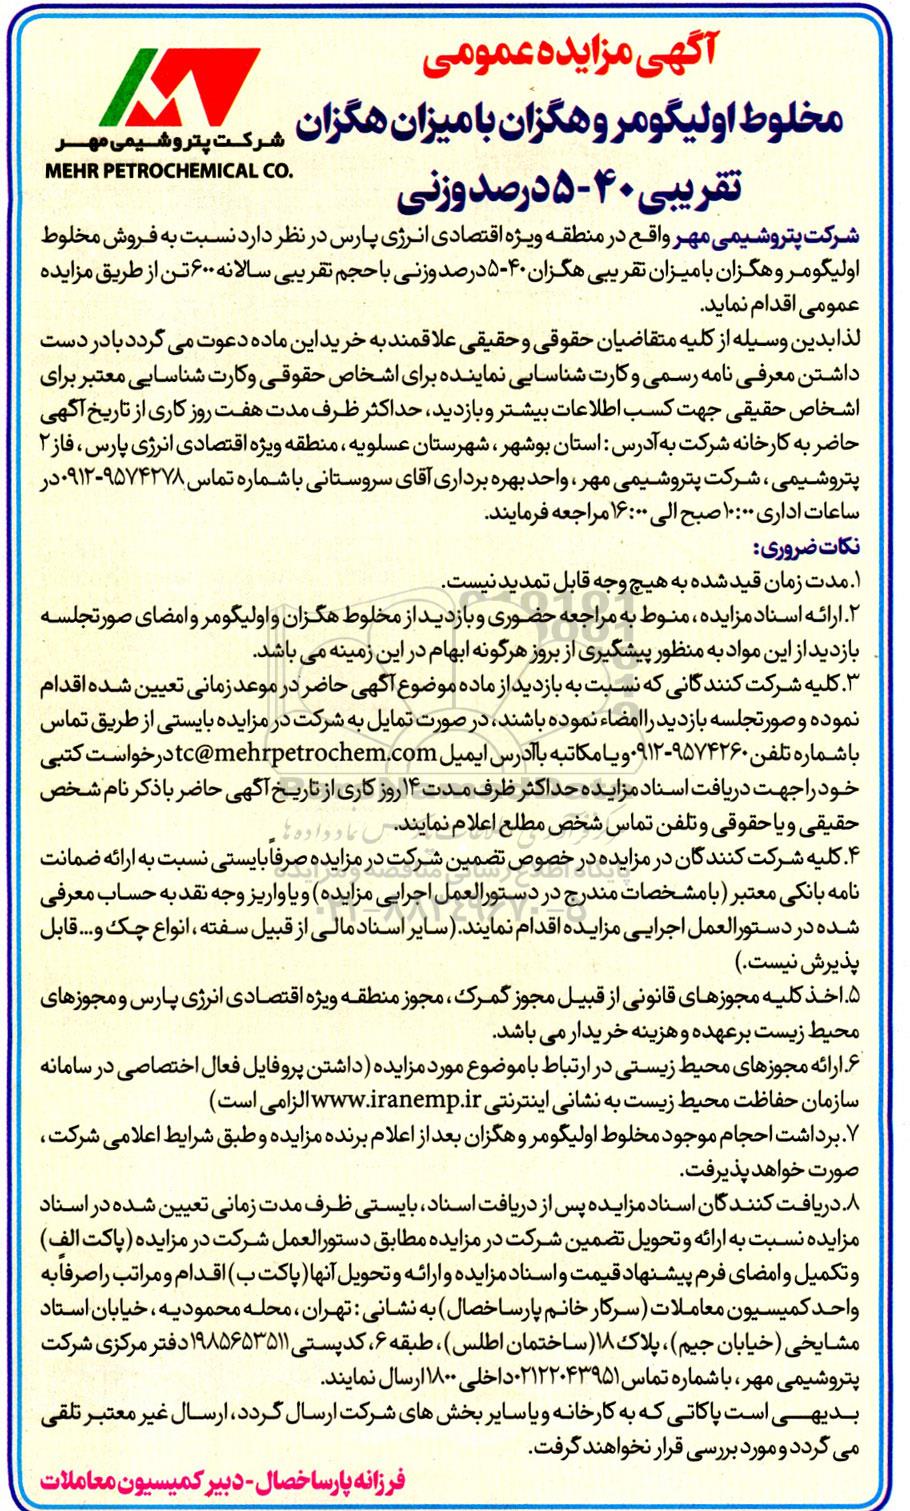 آگهی مزایده عمومی
مخلوط اولیگومر و هگزان با میزان هگزان
تقریبی ۴۰-۵ درصد وزنی
شرکت پتروشیمی مهر
MEHR PETROCHEMICAL CO.
شرکت پتروشیمی مهر واقع در منطقه ویژه اقتصادی انرژی پارس در نظر دارد نسبت به فروش مخلوط
اولیگومر و هگزان با میزان تقریبی هگزان ۴۰-۵ درصد وزنی با حجم تقریبی سالانه ۶۰۰ تن از طریق مزایده
عمومی اقدام نماید.
لذا بدین وسیله از کلیه متقاضیان حقوقی و حقیقی علاقمند به خرید این ماده دعوت می گردد با در دست
داشتن معرفی نامه رسمی و کارت شناسایی نماینده برای اشخاص حقوقی و کارت شناسایی معتبر برای
اشخاص حقیقی جهت کسب اطلاعات بیشتر و بازدید، حداکثر ظرف مدت هفت روز کاری از تاریخ آگهی
حاضر به کارخانه شرکت به آدرس : استان بوشهر ، شهرستان عسلویه ، منطقه ویژه اقتصادی انرژی پارس ، فاز ۲
پتروشیمی ، شرکت پتروشیمی مهر ، واحد بهره برداری آقای سروستانی با شماره تماس ۰۹۱۲-۹۵۷۴۲۷۸ در
ساعات اداری ۱۰:۰۰ صبح الی ۱۶:۰۰ مراجعه فرمایند.
نکات ضروری:
۱.مدت زمان قید شده به هیچ وجه قابل تمدید نیست.
۲.ارائه اسناد مزایده ، منوط به مراجعه حضوری و بازدید از مخلوط هگزان و اولیگومر و امضای صورتجلسه
بازدید از این مواد به منظور پیشگیری از بروز هرگونه ابهام در این زمینه می باشد.
۳.کلیه شرکت کنندگانی که نسبت به بازدید از ماده موضوع آگهی حاضر در موعد زمانی تعیین شده اقدام
نموده و صورتجلسه بازدید را امضاء نموده باشند، در صورت تمایل به شرکت در مزایده بایستی از طریق تماس
با شماره تلفن ۰۹۱۲-۹۵۷۴۲۶۰ و یا مکاتبه با آدرس ایمیل tc@mehrpetrochem.com درخواست کتبی
خود را جهت دریافت اسناد مزایده حداکثر ظرف مدت ۱۴ روز کاری از تاریخ آگهی حاضر با ذکر نام شخص
حقیقی و یا حقوقی و تلفن تماس شخص مطلع اعلام نمایند.
۴.کلیه شرکت کنندگان در مزایده در خصوص تضمین شرکت در مزایده صرفاً بایستی نسبت به ارائه ضمانت
نامه بانکی معتبر (با مشخصات مندرج در دستورالعمل اجرایی مزایده) و یا واریز وجه نقد به حساب معرفی
شده در دستورالعمل اجرایی مزایده اقدام نمایند.(سایر اسناد مالی از قبیل سفته ، انواع چک و... قابل
پذیرش نیست.)
۵.اخذ کلیه مجوزهای قانونی از قبیل مجوز گمرک ، مجوز منطقه ویژه اقتصادی انرژی پارس و مجوزهای
محیط زیست بر عهده و هزینه خریدار می باشد.
۶.ارائه مجوزهای محیط زیستی در ارتباط با موضوع مورد مزایده (داشتن پروفایل فعال اختصاصی در سامانه
سازمان حفاظت محیط زیست به نشانی اینترنتی www.iranemp.ir الزامی است)
۷.برداشت احجام موجود مخلوط اولیگومر و هگزان بعد از اعلام برنده مزایده و طبق شرایط اعلامی شرکت ،
صورت خواهد پذیرفت.
۸.دریافت کنندگان اسناد مزایده پس از دریافت اسناد، بایستی ظرف مدت زمانی تعیین شده در اسناد
مزایده نسبت به ارائه و تحویل تضمین شرکت در مزایده مطابق دستورالعمل شرکت در مزایده (پاکت الف)
و تکمیل و امضای فرم پیشنهاد قیمت و اسناد مزایده و ارائه و تحویل آنها (پاکت ب) اقدام و مراتب را صرفاً به
واحد کمیسیون معاملات (سرکار خانم پارسا خصال) به نشانی : تهران ، محله محمودیه ، خیابان استاد
مشایخی (خیابان جیم)، پلاک ۱۸ (ساختمان اطلس)، طبقه ۶، کدپستی ۱۹۸۵۶۵۳۵۱۱ دفتر مرکزی شرکت
پتروشیمی مهر ، با شماره تماس ۰۲۱۲۲۰۴۳۹۵۱ داخلی ۱۸۰۰ ارسال نمایند.
بدیهی است پاکاتی که به کارخانه و یا سایر بخش های شرکت ارسال گردد، ارسال غیر معتبر تلقی
می گردد و مورد بررسی قرار نخواهند گرفت.
فرزانه پارسا خصال - دبیر کمیسیون معاملات
پایگاه اطلاع رسانی مناقصه و مزایده
۰۲۱-۸۸۳۴۹۶۷۰-۵